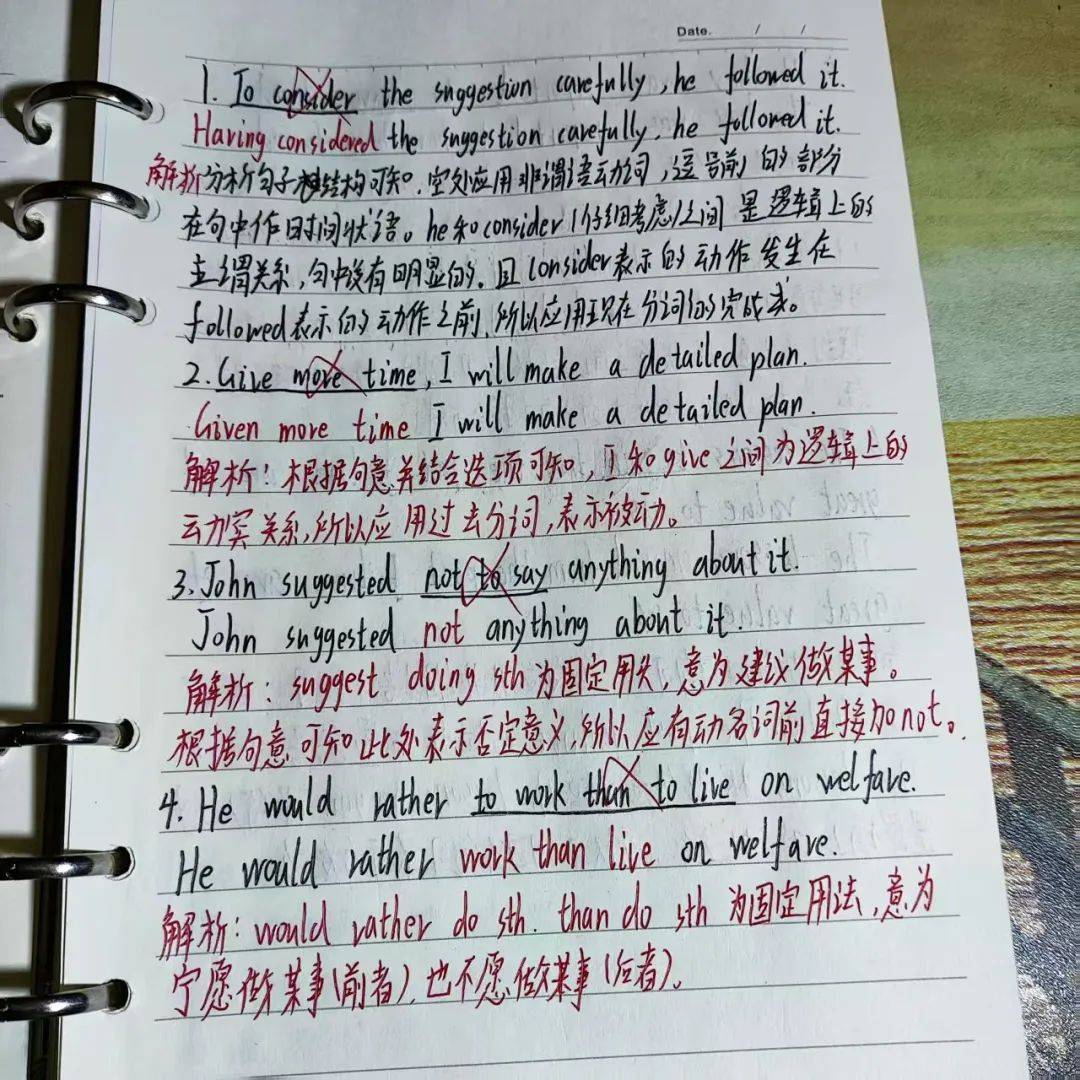 Date. / /
1. To consider the suggestion carefully, he followed it.
Having considered the suggestion carefully, he followed it.
解析分析句子结构可知,空处应用非谓语动词,逗号前的部分
在句中作时间状语。he和consider(仔细考虑)之间是逻辑上的
主谓关系,句中没有明显的,且consider表示的动作发生在
followed表示的动作之前,所以应用现在分词的完成式。
2. Give more time, I will make a detailed plan.
Given more time I will make a detailed plan.
解析:根据句意并结合选项可知,I和give之间为逻辑上的
动宾关系,所以应用过去分词,表示被动。
3. John suggested not to say anything about it.
John suggested not anything about it.
解析:suggest doing sth为固定用法,意为建议做某事。
根据句意可知此处表示否定意义,所以应有动名词前直接加not。
4. He would rather to work than to live on welfare.
He would rather work than live on welfare.
解析:would rather do sth. than do sth为固定用法,意为
宁愿做某事(前者),也不愿做某事(后者)。